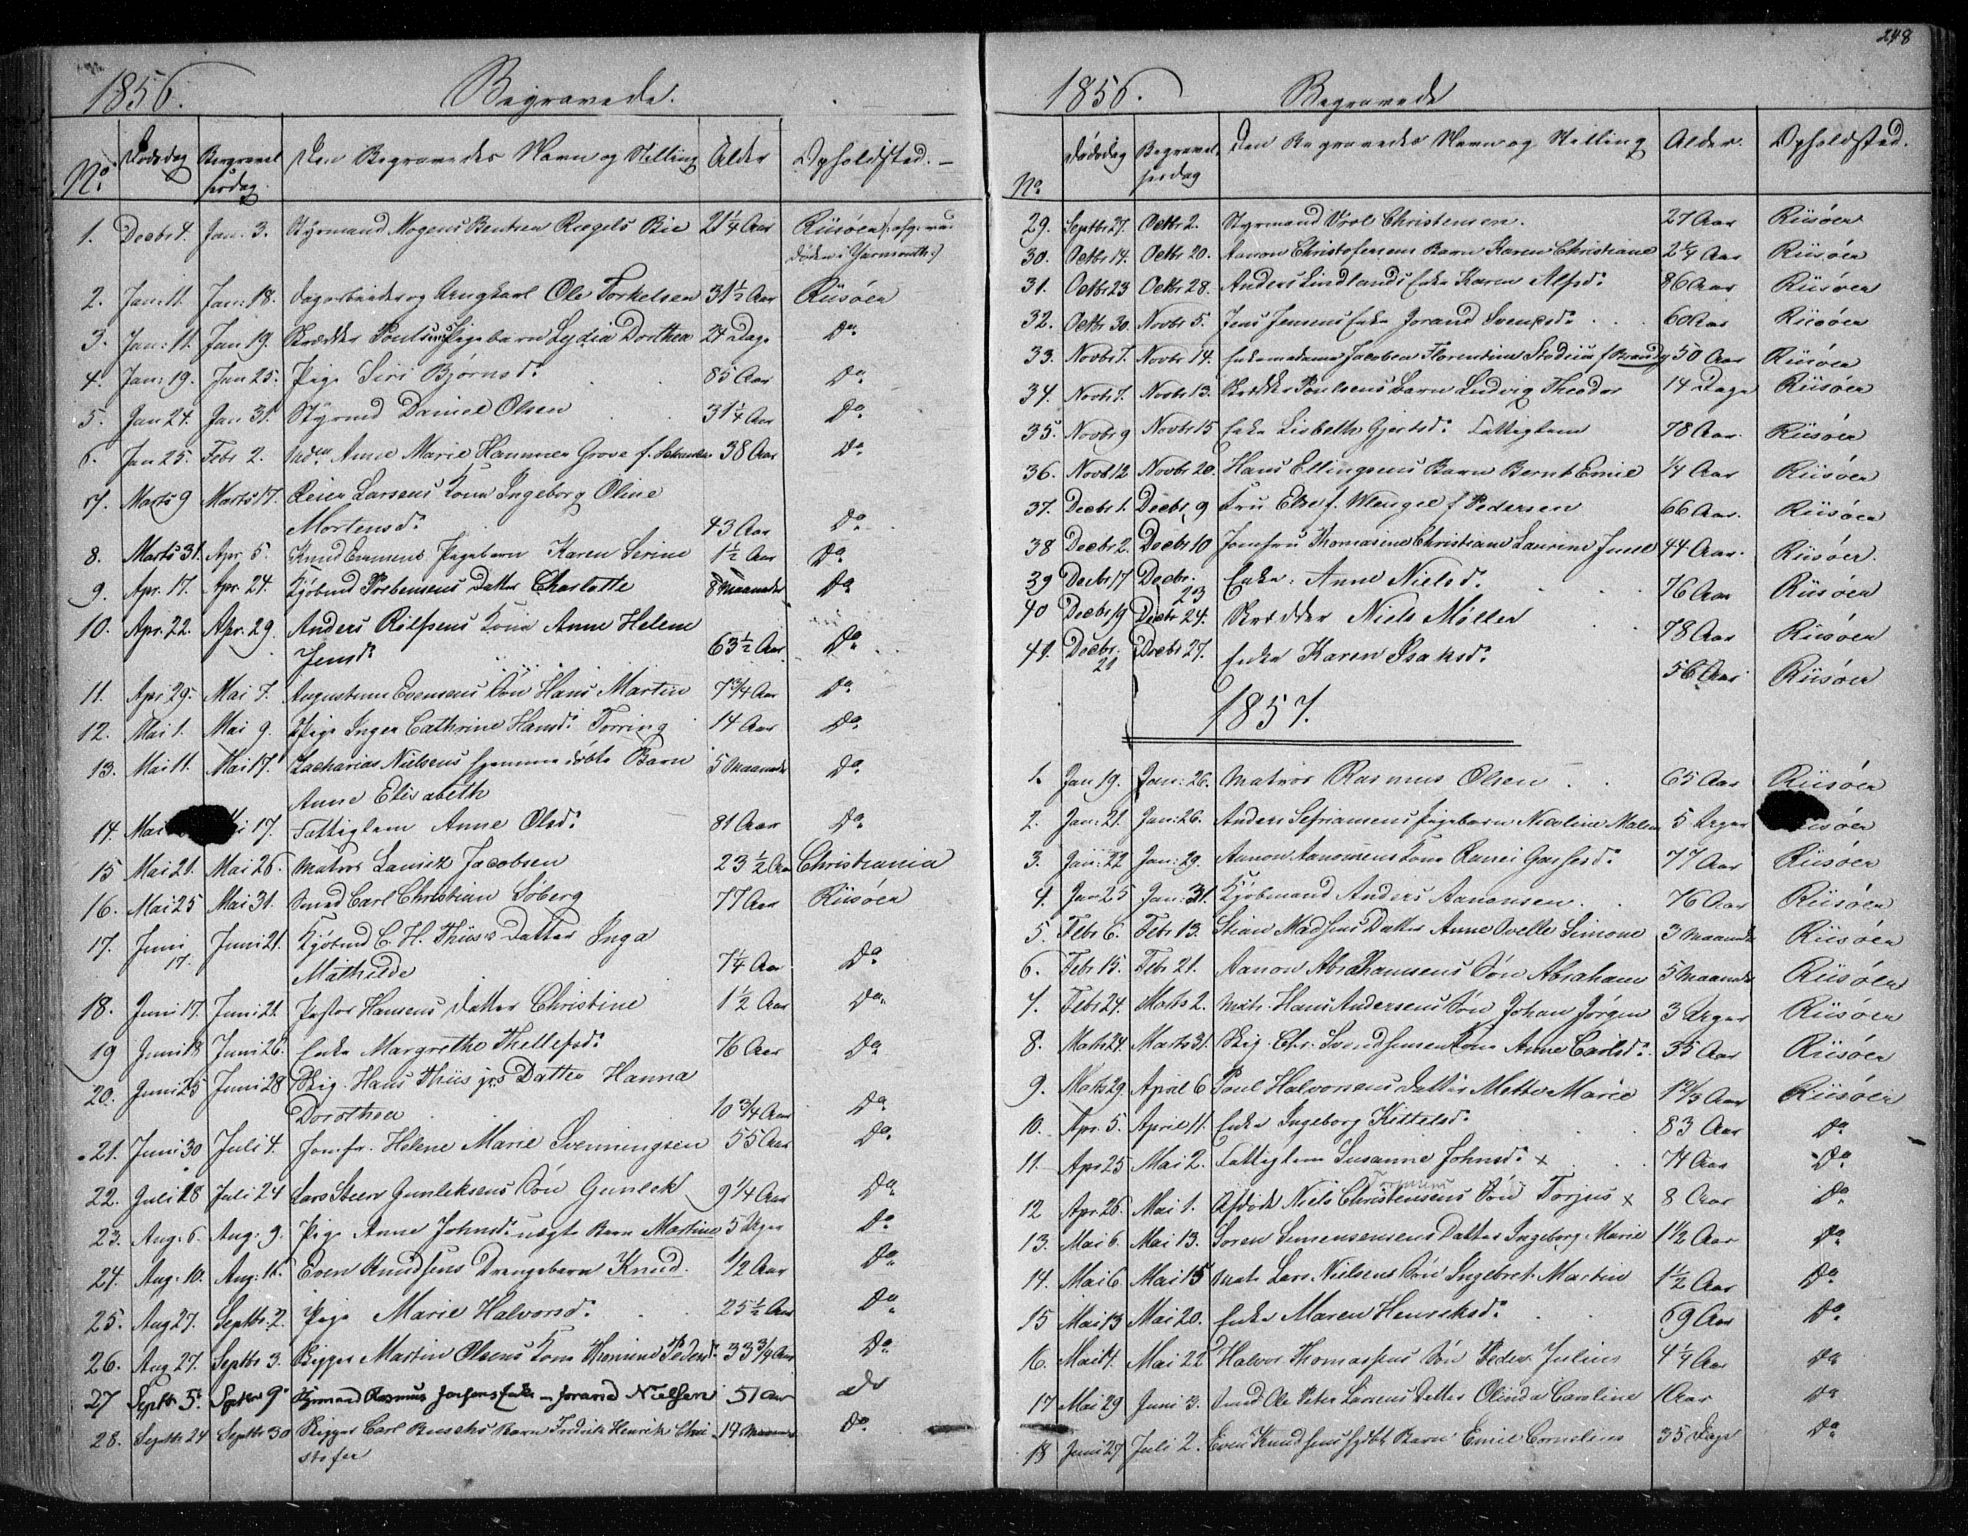 248
1856. Begravede.
No. Dødsdag Begravelsesdag. Den Begravedes Navn og Stilling Alder Opholdsted.
1. Decbr 4. Jan: 3. Styrmand Mogens Bentsen Riegels Bie 21¼ Aar Riisøer
døden i Yarmouth:)
2. Jan: 11. Jan: 18. Dagarbeider og Ungkarl Ole Torkelsen 31½ Aar Riisøer
3. Jan: 11. Jan 19. Skrædder Poulsens Pigebarn Lydia Dorthea 24 Dage Do
4. Jan: 19. Jan 25. Pige Siri Bjørnsd: 85 Aar Do
5. Jan 24. Jan 31. Styrmd Daniel Olsen 31¼ Aar Do
6. Jan 25. Febr 2. Mad. Anne Marie Hammer Grove f. 38 Aar Do
7. Marts 9 Marts 17. Reier Larsens Kone Ingeborg Oline
Mortensd: 43 Aar Do
8. Marts 31. Apr. 5. Knud Pigebarn Karen Serine 1½ Aar Do
9. Apr. 17. Apr. 24. Kjøbmd Prebensens Datter Charlotte 8 Maaneder Do
10. Apr. 22. Apr. 29. Anders Rolfsens Kone Anne Helene
Jensd: 63½ Aar Do
11. Apr 29. Mai 7. Evensens Søn Hans Martin 7¾ Aar Do
12. Mai 1. Mai 9. Pige Inger Cathrine Hansd: Torring 14 Aar Do
13. Mai 11. Mai 17. Zacharias Nielsens hjemmedøbte Barn 5 Maaneder Do
Anne Elisabeth
14. Mai 17. Fattiglem Anne Olsd: 81 Aar Do
15 Mai 21. Mai 26. Matros Lauritz Jacobsen 23½ Aar Christiania
16. Mai 25 Mai 31. Smed Carl Christian Søberg 77 Aar Riisøer
17. Juni 17. Juni 21. Kjøbmd C. H. Thiis's Datter Inga
Mathilde 7¼ Aar Do
18. Juni 17. Juni 21. Pastor Hansens Datter Christine 1½ Aar Do
19 Juni 18 Juni 26. Enke Margrethe Thellefsd: 76 Aar Do
20. Juni 25 Juni 28 Skip. Hans Thiis jrs Datter Hanna
Dorothea 10¾ Aar Do
21. Juni 30 Juli 4. Jomfr. Helene Marie Svenningsen 55 Aar Do
22. Juli 18 Juli 24 Lars Steen Gunleksens Søn Gunlek 9¼ Aar Do
23. Aug: 6. Aug: 9. Pige Anne Johnsd: uægte Barn Martine 5 Uger Do
24. Aug: 10. Aug: 16. Even Knudsens Drengebarn Knud. ½ Aar Do
25. Aug 27. Septbr. 2. Pige Marie Halvorsd: 25½ Aar Do
26. Aug 27. Septbr 3. Rigger Martin Olsens Kone Pedersd: 33¾ Aar Do
27 Septbr 5. Septbr 9. Styrmand Rasmus Jensens Enke Jorand Nielsen 51 Aar do
28. Septbr 24 Septbr 30 Rigger Carl Buschs Barn Fredrik Henrik Chri- 14 Maaneder Do
stofer
1856. Begravede
No. Dødsdag Begravelsesdag Den Begravedes Navn og Stilling Alder. Opholdsted.
29. Septbr 27. Octbr 2. Styrmand Christensen. 27 Aar Riisøer
30. Octbr 14. Octbr 20. Aanon Christofersens Barn Karen Christiane 2¼ Aar Riisøer
31. Octbr 23 Octbr 28. Anders Lindlands Enke Karen Alfsd: 86 Aar Riisøer
32. Octbr 30. Novbr 5. Jens Jensens Enke Jorand Svensd: 60 Aar Riisøer
33. Novbr 7. Novbr 14. Enkemadame Jacobea Florentine f Brandt 50 Aar Riisøer
34. Novbr 7. Novbr 13. Skrædder Poulsens Barn Ludvig Theodor 14 Dage Riisøer
35. Novbr 9 Novbr 15 Enke Lisbeth Gjertsd: Fattiglem 78 Aar. Riisøer
36. Novb 12 Novbr 20. Hans Ellingsens Barn Bernt Emil ¼ Aar Riisøer
37. Decbr 1. Decbr 9 Fru Else f. Wengel f Pedersen 66 Aar. Riisøer
38 Decbr 2. Decbr 10 Jomfru Thomasine Christiane Laurine Juul 44 Aar. Riisøer.
39 Decbr 17 Decbr. 23 Enke Anne Nielsd. 76 Aar Riisøer
40 Decbr 19 Decbr 24. Skrædder Niels Møller 78 Aar Riisøer
41. Decbr. 21 Decbr 27. Enke Karen Isaksd: 56 Aar Riisøer
1857.
1. Jan 19. Jan: 26. Matros Rasmus Olsen 65 Aar Riisøer
2. Jan: 21. Jan: 26. Anders Pigebarn Nicoline Malen 5 Uger Riisøer
3. Jan: 22 Jan: 29. Aanon Aanonsens Kone 77 Aar Riisøer
4. Jan 25 Jan: 31. Kjøbmand Anders Aanonsen. 76 Aar Riisøer
5. Febr 6. Febr 13. Stian Madsens Datter Anne Simone 3 Maaneder Riisøer
6. Febr 15. Febr 21. Aanon Abrahamsens Søn Abraham 5 Maaneder Riisøer
7. Febr 24. Marts 2. Matr. Hans Andersens Søn Johan Jørgen 3 Uger Riisøer
8. Marts 24. Marts 31. Skip. Chr. Svendsens Kone Anne Carlsd: 35 Aar Riisøer
9. Marts 29. April 6 Poul Halvorsens Datter Mette Marie 1⅔ Aar Riisøer
10. Apr. 5. April 11. Enke Ingeborg Kittelsd: 83 Aar Do
11. Apr 25 Mai 2. Fattiglem Susanne Johnsd: x 74 Aar Do
12 Apr 26. Mai 1. Afdøde Niels Christensens Søn Torjus x 8 Aar Do
13. Mai 6. Mai 13. Søren Simensens Datter Ingeborg Marie 1½ Aar Do
14. Mai 6 Mai 15 Matr. Lars Nielsens Søn Ingebret Martin 1½ Aar Do
15 Mai 13 Mai 20. Enke Maren Henriksd: 69 Aar Do
16. Mai 17. Mai 22 Halvor Thomassens Søn Peder Julius 4¼ Aar Do
17 Mai 29 Juni 3. Smed Ole Peter Larsens Datter Olinda Caroline 1 Aar Do
18 Juni 27 Juli 2. Even Knudsens Barn Emil Cornelius 35 Dage Do